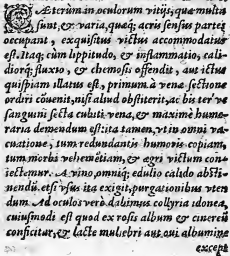 CÆterùm in oculorum vitijs, quæ multa
sunt, & varia, quæq; acris sensus partes
occupant, exquisitus victus accommodatus
est. Itaq; cùm lippitudo, & inflammatio, cali-
diorq; fluxio, & chemosis offendit, aut ictus
quispiam illatus est, primùm à venæ sectione
ordiri cõuenit, nisi aliud obstiterit, ac bis ter've
sanguinis secta cubiti vena, & maximè hume-
raria demendum est: ita tamen, vt in omni va-
cuatione, tum redundantis humoris copiam,
tum morbi vehemẽtiam, & ægri victum con-
iectemur. A vino, omniq; edulio calido absti-
nendũ. etsi vsus ita exigit, purgationibus vten
dum. Ad oculos verò dabimus collyria idonea,
cuiusmodi est quod ex rosis album & cinereũ
conficitur, & lacte muliebri aut oui albumine
except